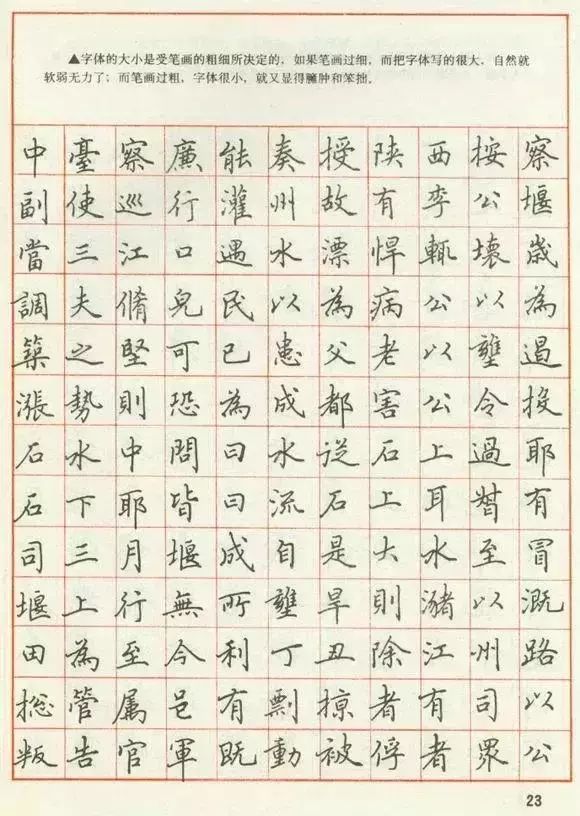 ▲字体的大小是受笔画的粗细所决定的，如果笔画过细，而把字体写的很大，自然就
软弱无力了；而笔画过粗，字体很小，就又显得臃肿和笨拙。
中臺察廉能奏授陝西按察
副使巡行灌州故有李公堰
當三江口遇水漂悍輒壞歲
調夫脩皃民以為病公以為
築之堅可已患父老以壅遏
漲勢則恐為成都害公令投
石水中問曰水從石上過耶
石下耶皆曰流石上耳有
司三月堰成自是大水至冒
堰上行無所壅旱則瀦以溉
田為至今利丁丑除江州路
総管属邑有剽掠者有司以
叛告官軍既動被俘者眾公
23